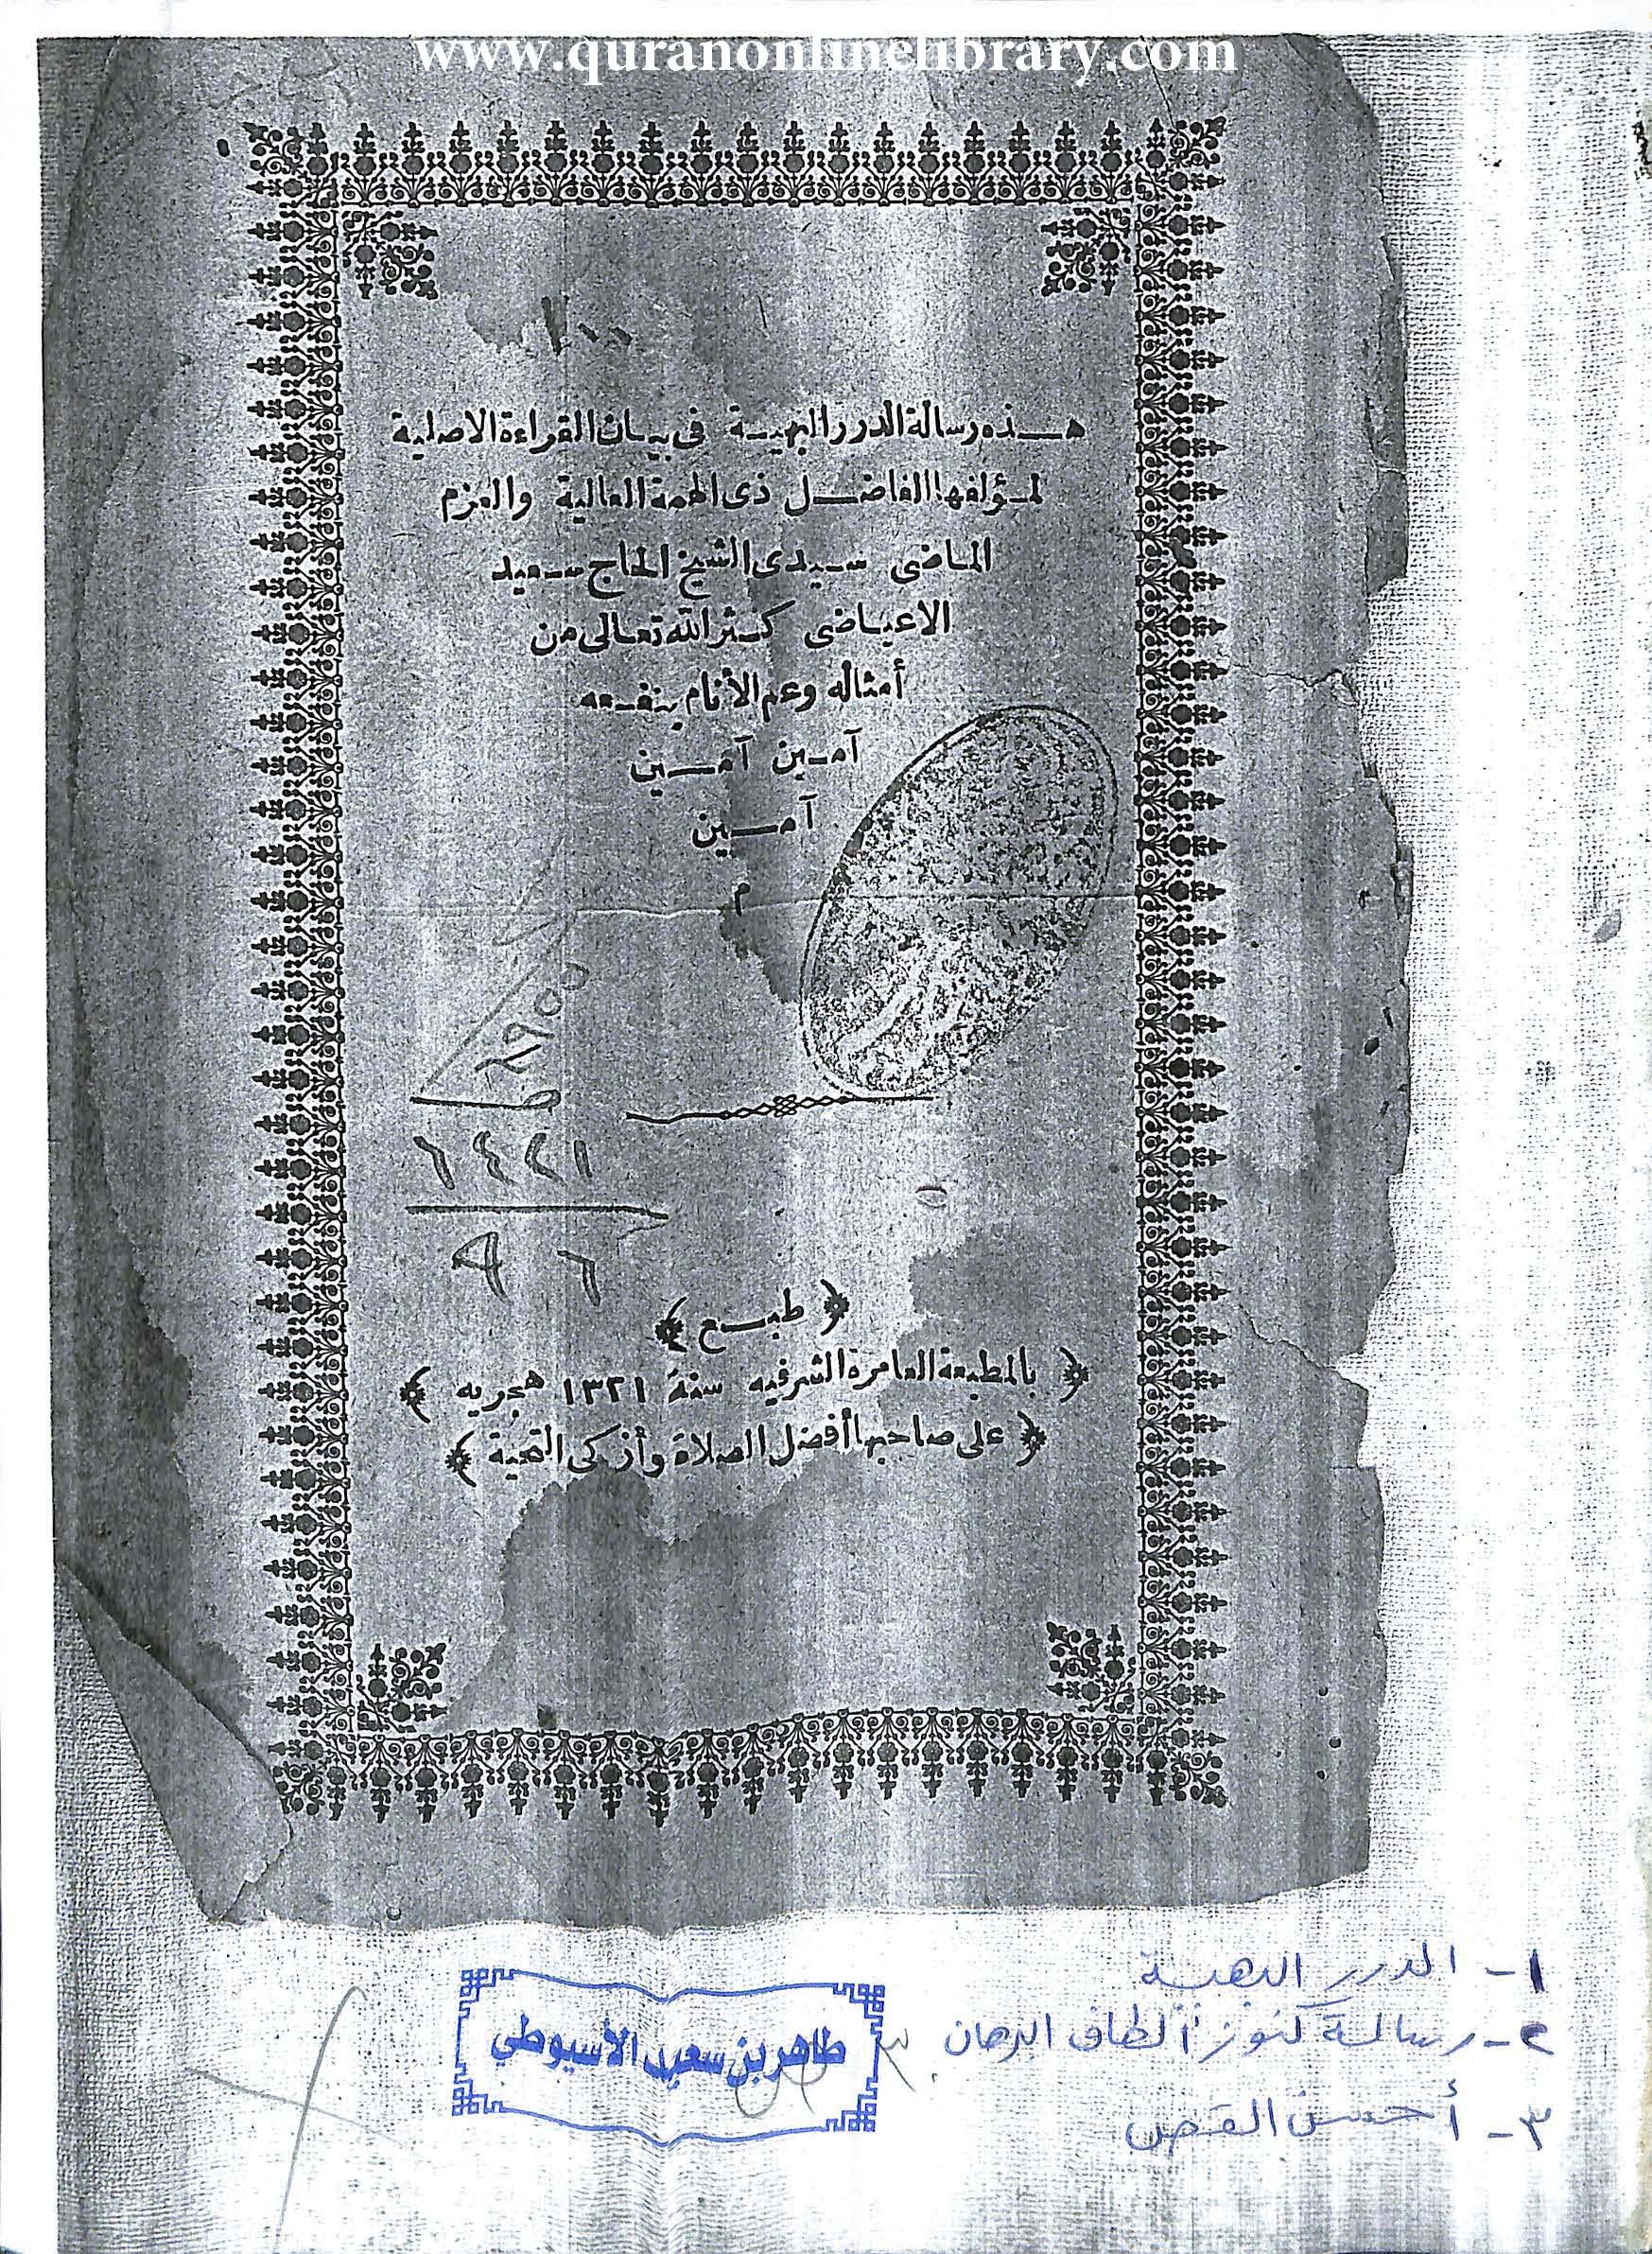 www.quranonlinelibrary.com
١٠٠
هذه رسالة الدرر البهية فى بيان القراءة الاصلية
لمؤلفها الفاضل ذى الهمة العالية والعزم
الماضى سيدى الشيخ الحاج سعيد
الاعياضى كثر الله تعالى من
أمثاله وعم الأنام بنفعه
آمين آمين
آمين
م
١٤٢١
٩٦
﴿ طبع ﴾
﴿ بالمطبعة العامرة الشرفيه سنة ١٣٢١ هجريه ﴾
﴿ على صاحبها أفضل الصلاة وأزكى التحية ﴾
١- الدرر البهية
٢- رسالة كنوز ألطاف البرهان
٣- أحسن القصص
طاهر بن سعيد الأسيوطي